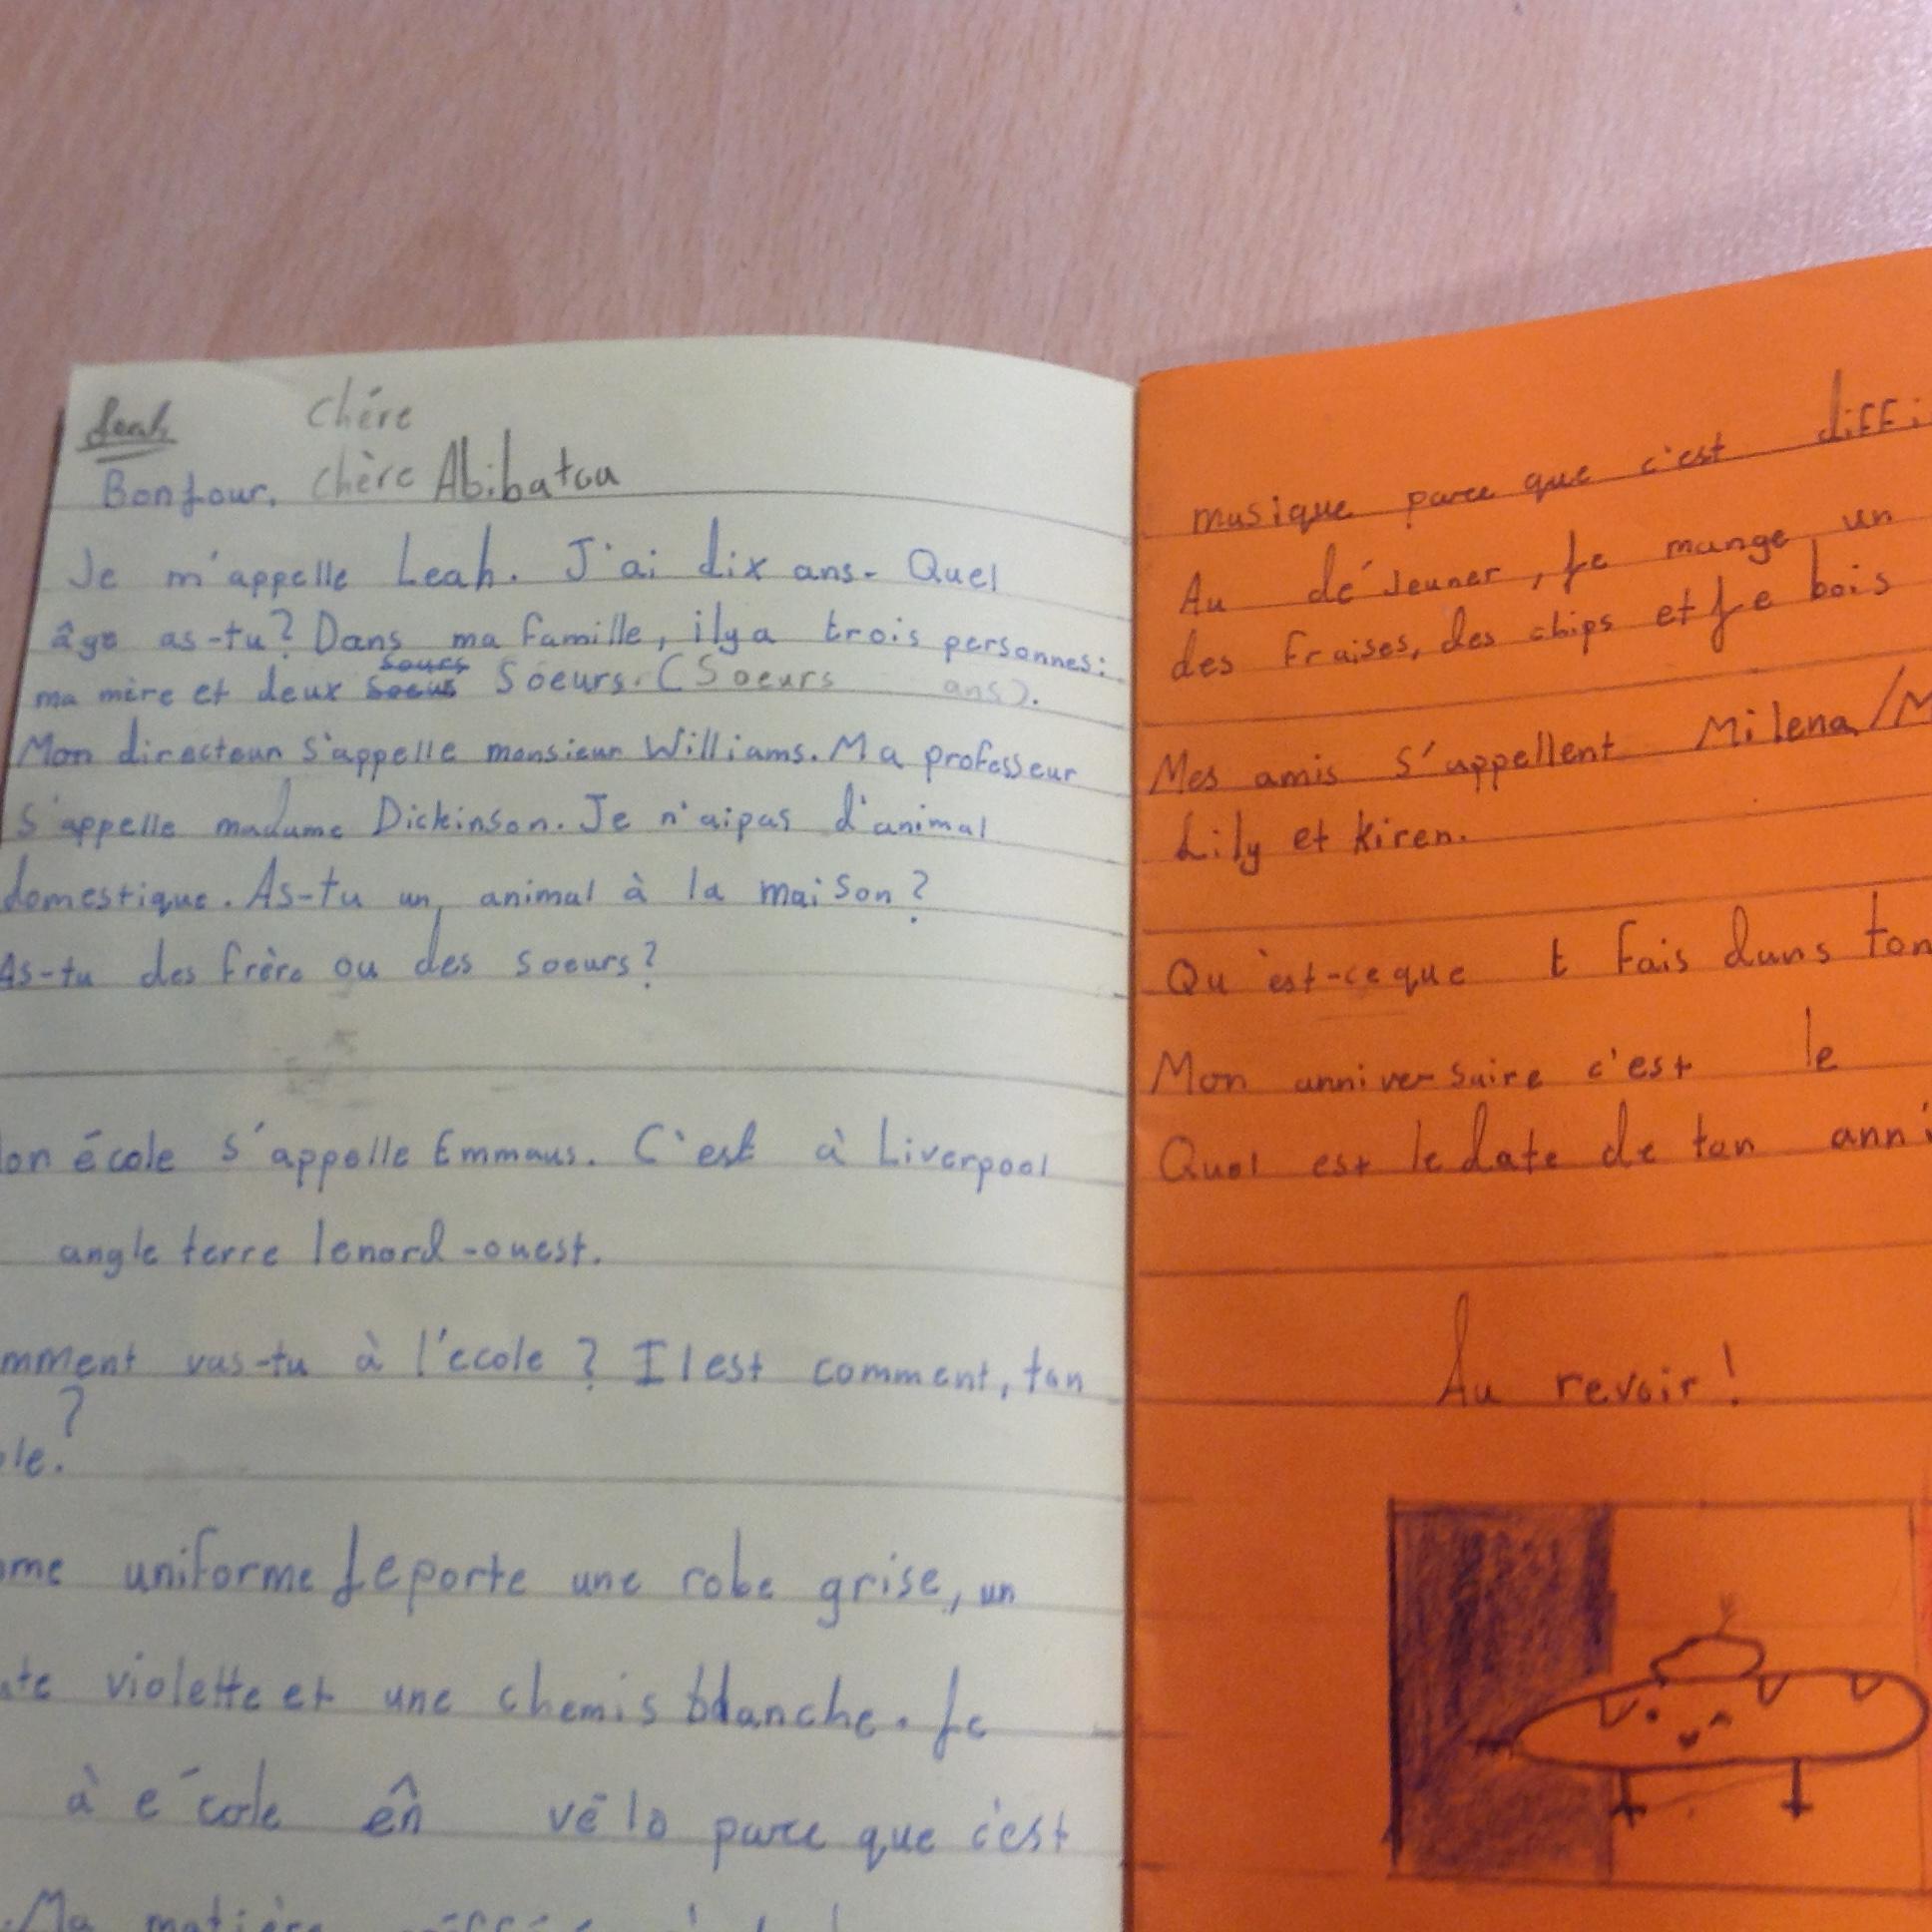 Leah
Chère
Bonjour. Chère Abibatou
Je m'appelle Leah. J'ai dix ans. Quel
âge as-tu? Dans ma famille, ilya trois personnes:
ma mère et deux soeurs. (Soeurs ans).
Mon directeur s'appelle monsieur Williams. Ma professeur
s'appelle madame Dickinson. Je n'aipas d'animal
domestique. As-tu un animal à la maison?
As-tu des frère ou des soeurs?
on école s'appelle Emmaus. C'est à Liverpool
angle terre lenord-ouest.
mment vas-tu à l'école? Ilest comment, ton
?
le.
me uniforme Jeporte une robe grise, un
te violette et une chemis blanche. Je
à école en vélo parce que c'est
Ma matière
musique parce que c'est diffi
Au déjeuner, je mange un
des fraises, des chips et je bois
Mes amis s'appellent Milena/M
Lily et Kiren.
Qu'est-ceque t fais dans ton
Mon anniversaire c'est le
Quel est le date de ton anni
Au revoir!